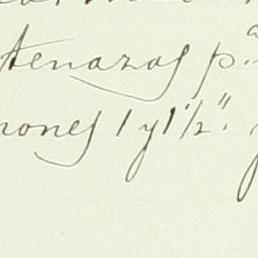 tenazas p.ª
nones 1 y 1½".